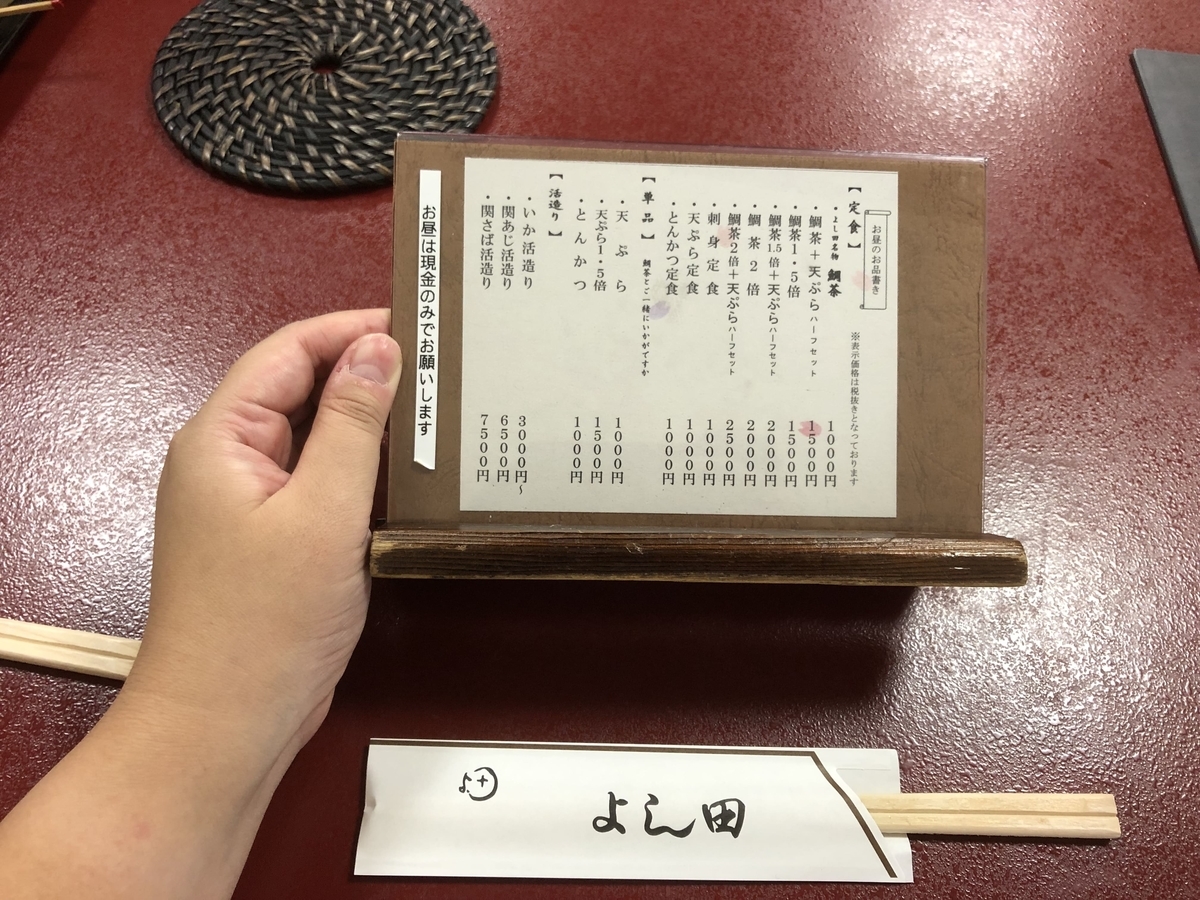 お昼のお品書き
※表示価格は税抜きとなっております
【定食】
・よし田名物 鯛茶 1000円
・鯛茶+天ぷらハーフセット 1500円
・鯛茶1・5倍 1500円
・鯛茶1.5倍+天ぷらハーフセット 2000円
・鯛茶2倍 2000円
・鯛茶2倍+天ぷらハーフセット 2500円
・刺身定食 1000円
・天ぷら定食 1000円
・とんかつ定食 1000円
【単品】 鯛茶とご一緒にいかがですか
・天ぷら 1000円
・天ぷら1・5倍 1500円
・とんかつ 1000円
【活造り】
・いか活造り 3000円~
・関あじ活造り 6500円
・関さば活造り 7500円
お昼は現金のみでお願いします
よし田